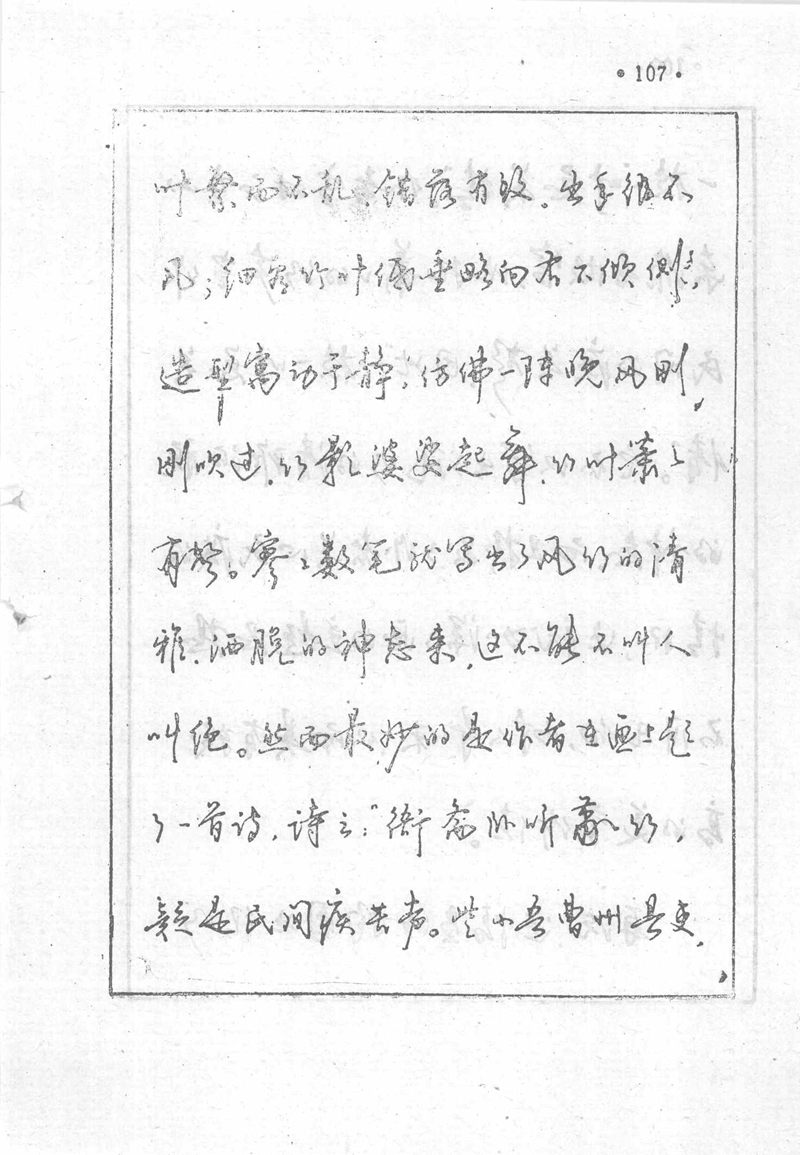 •107•
叶繁而不乱，错落有致。出手很不
凡；细看竹叶低垂略向右下倾侧，
造型寓动于静；仿佛一阵晚风刚
刚吹过，竹影婆娑起舞，竹叶萧々
有声。寥々数笔就写出了风竹的清
雅、洒脱的神态来，这不能不叫人
叫绝。然而最妙的是作者在画上题
了一首诗，诗云："衙斋卧听萧々竹，
疑是民间疾苦声。些小吾曹州县吏，